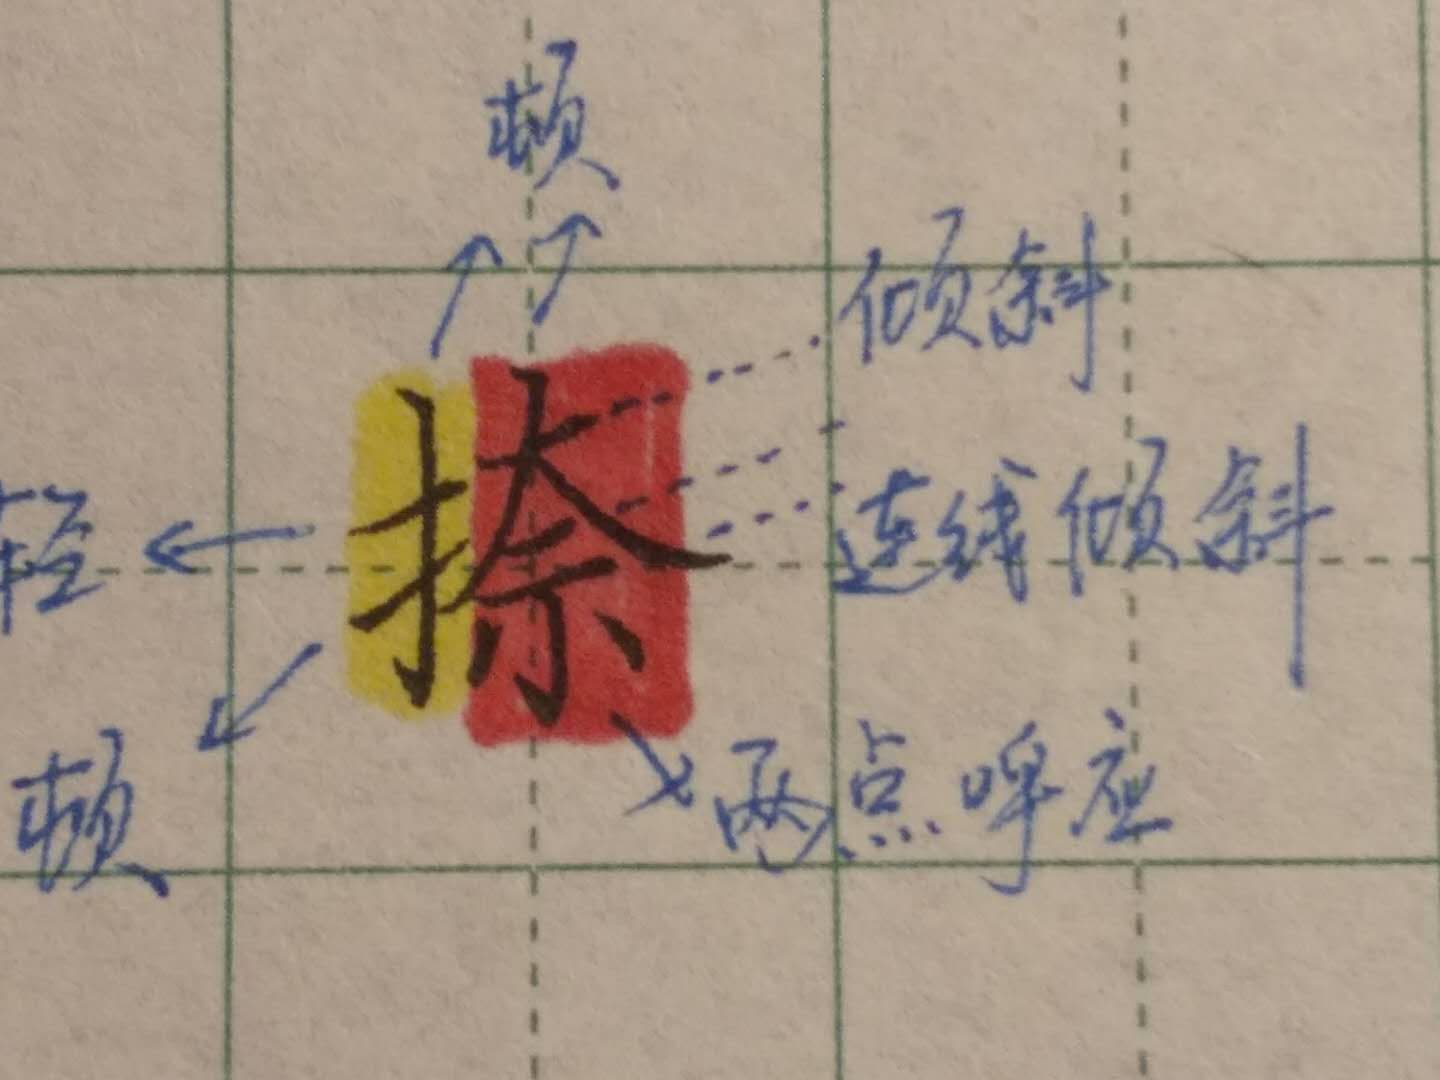 顿
倾斜
捺
轻
连线倾斜
顿
两点呼应